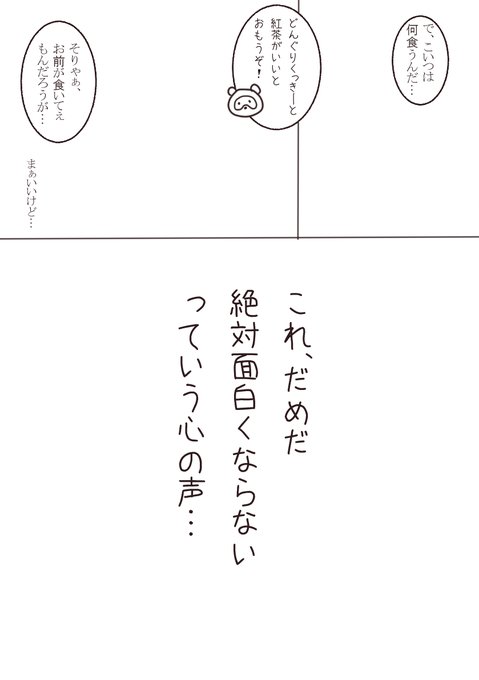 で、こいつは
何食うんだ…
どんぐりくっきーと
紅茶がいいと
おもうぞ！
そりゃぁ、
お前が食いてぇ
もんだろうが…
まぁいいけど…
これ、だめだ
絶対面白くならない
っていう心の声…